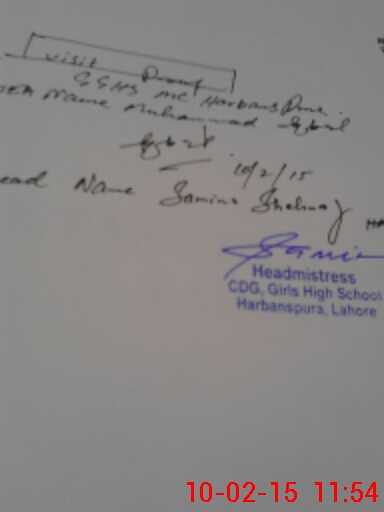 visit Proof
GGHS MC Harbans Pura.
DEA Name Muhammad Iqbal
Iqbal
10/2/15
ead Name Samina Shehnaz
Samin
Headmistress
CDG, Girls High School
Harbanspura, Lahore
10-02-15 11:54